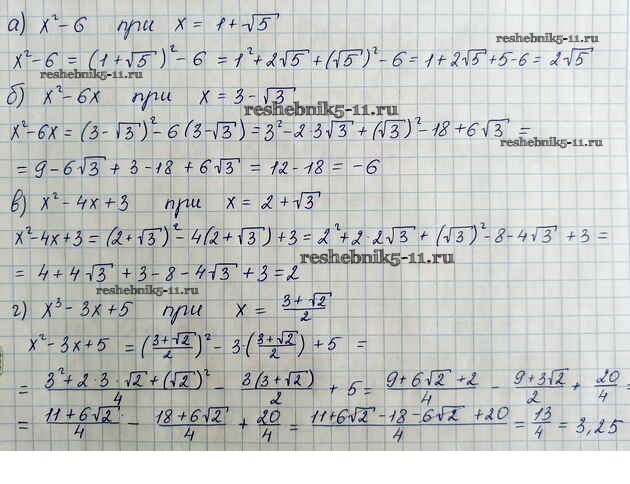 а) x² - 6 при x = 1 + √5
x² - 6 = (1 + √5)² - 6 = 1² + 2√5 + (√5)² - 6 = 1 + 2√5 + 5 - 6 = 2√5
reshebnik5-11.ru
reshebnik5-11.ru
б) x² - 6x при x = 3 - √3
reshebnik5-11.ru
x² - 6x = (3 - √3)² - 6(3 - √3) = 3² - 2·3√3 + (√3)² - 18 + 6√3 =
reshebnik5-11.ru
= 9 - 6√3 + 3 - 18 + 6√3 = 12 - 18 = -6
в) x² - 4x + 3 при x = 2 + √3
x² - 4x + 3 = (2 + √3)² - 4(2 + √3) + 3 = 2² + 2·2√3 + (√3)² - 8 - 4√3 + 3 =
reshebnik5-11.ru
= 4 + 4√3 + 3 - 8 - 4√3 + 3 = 2
reshebnik5-11.ru
г) x³ - 3x + 5 при x = (3 + √2)/2
x² - 3x + 5 = ((3 + √2)/2)² - 3((3 + √2)/2) + 5 =
= (3² + 2·3·√2 + (√2)²)/4 - 3(3 + √2)/2 + 5 = (9 + 6√2 + 2)/4 - (9 + 3√2)/2 + 20/4 =
= (11 + 6√2)/4 - (18 + 6√2)/4 + 20/4 = (11 + 6√2 - 18 - 6√2 + 20)/4 = 13/4 = 3,25